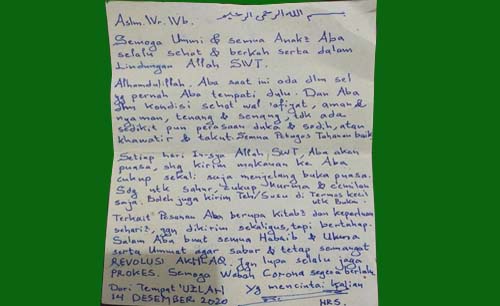 Aslm. Wr. Wb.
بسم الله الرحمن الرحيم
Semoga Ummi & semua Anak2 Aba
selalu sehat & berkah serta dalam
Lindungan Allah SWT.
Alhamdulillah. Aba saat ini ada dlm sel
yg pernah Aba tempati dulu. Dan Aba
dlm kondisi sehat wal 'afiyat, aman &
nyaman, tenang & senang, tdk ada
sedikit pun perasaan duka & sedih, atau
khawatir & takut. Semua Petugas Tahanan baik
Setiap hari In-sya Allah SWT, Aba akan
puasa, shg kirim makanan ke Aba
cukup sekali saja menjelang buka puasa.
Sdg utk sahur, cukup kurma & cemilan
saja. Boleh juga kirim Teh/Susu di Termos kecil
utk Buka.
Terkait Pesanan Aba berupa kitab2 dan keperluan
sehari2, jgn dikirim sekaligus, tapi bertahap.
Salam Aba buat semua Habaib & Ulama
serta Ummat agar sabar & tetap semangat
REVOLUSI AKHLAQ. Jgn lupa selalu jaga
PROKES. Semoga Wabah Corona segera berlalu.
Dari Tempat 'UZLAH
Yg mencintai Kalian
14 DESEMBER 2020
HRS.